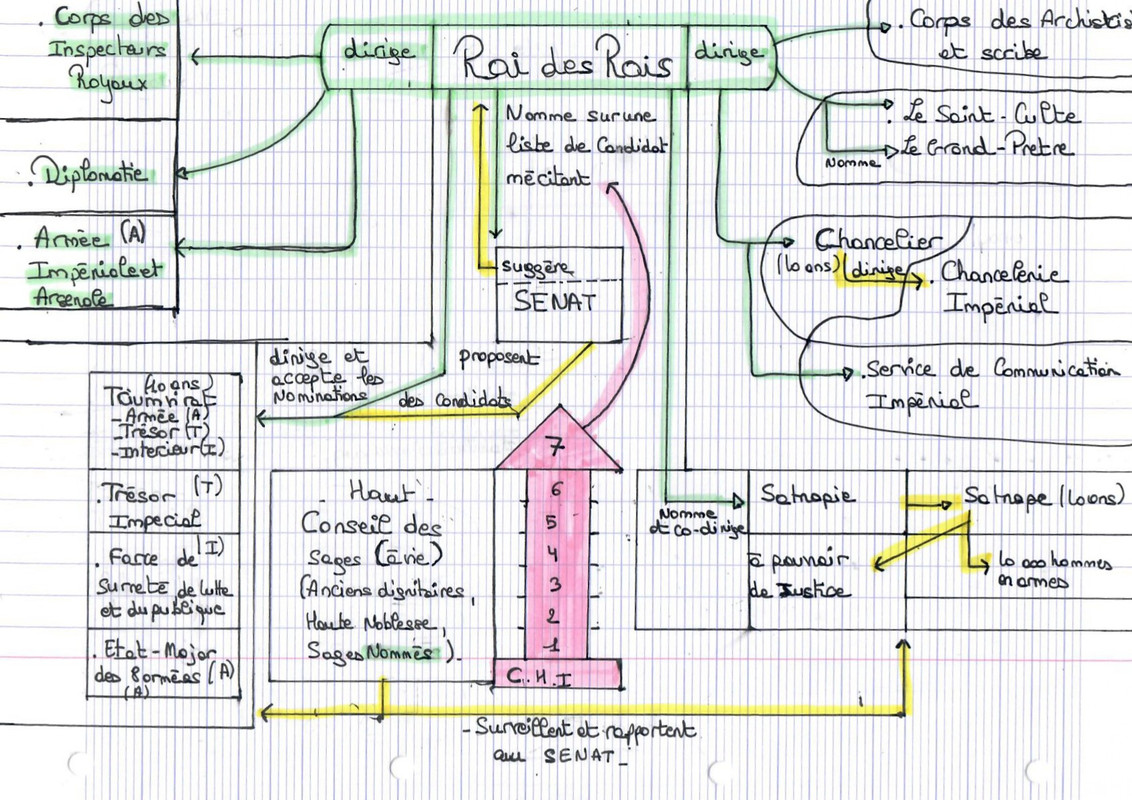 . Corps des
Inspecteurs
Royaux
. Diplomatie
. Armée (A)
Impériale et
Arsenale
dirige
Roi des Rois
dirige
. Corps des Archist
et scribe
. Le Saint-Culte
Nomme
Le Grand-Pretre
Nomme sur une
liste de Candidat
méritant
suggère
SENAT
Chancelier
(10 ans)
dirige
. Chancelerie
Impérial
. Service de Communication
Impérial
dirige et
accepte les
Nominations
proposent
des candidats
(10 ans)
Triumvirat
- Armée (A)
- Trésor (T)
- Interieur (I)
. Trésor (T)
Imperial
. Force de (I)
Surreté de lutte
et du publique
. Etat-Major
des 8 armées (A)
(A)
- Haut -
Conseil des
Sages (à vie)
(Anciens dignitaires,
Haute Noblesse,
Sages Nommés).
7
6
5
4
3
2
1
C.H.I
Nomme
et co-dirige
Satrapie
Satrape (10 ans)
à pouvoir
de Justice
10 000 hommes
en armes
- Surveillent et rapportent
au SENAT -